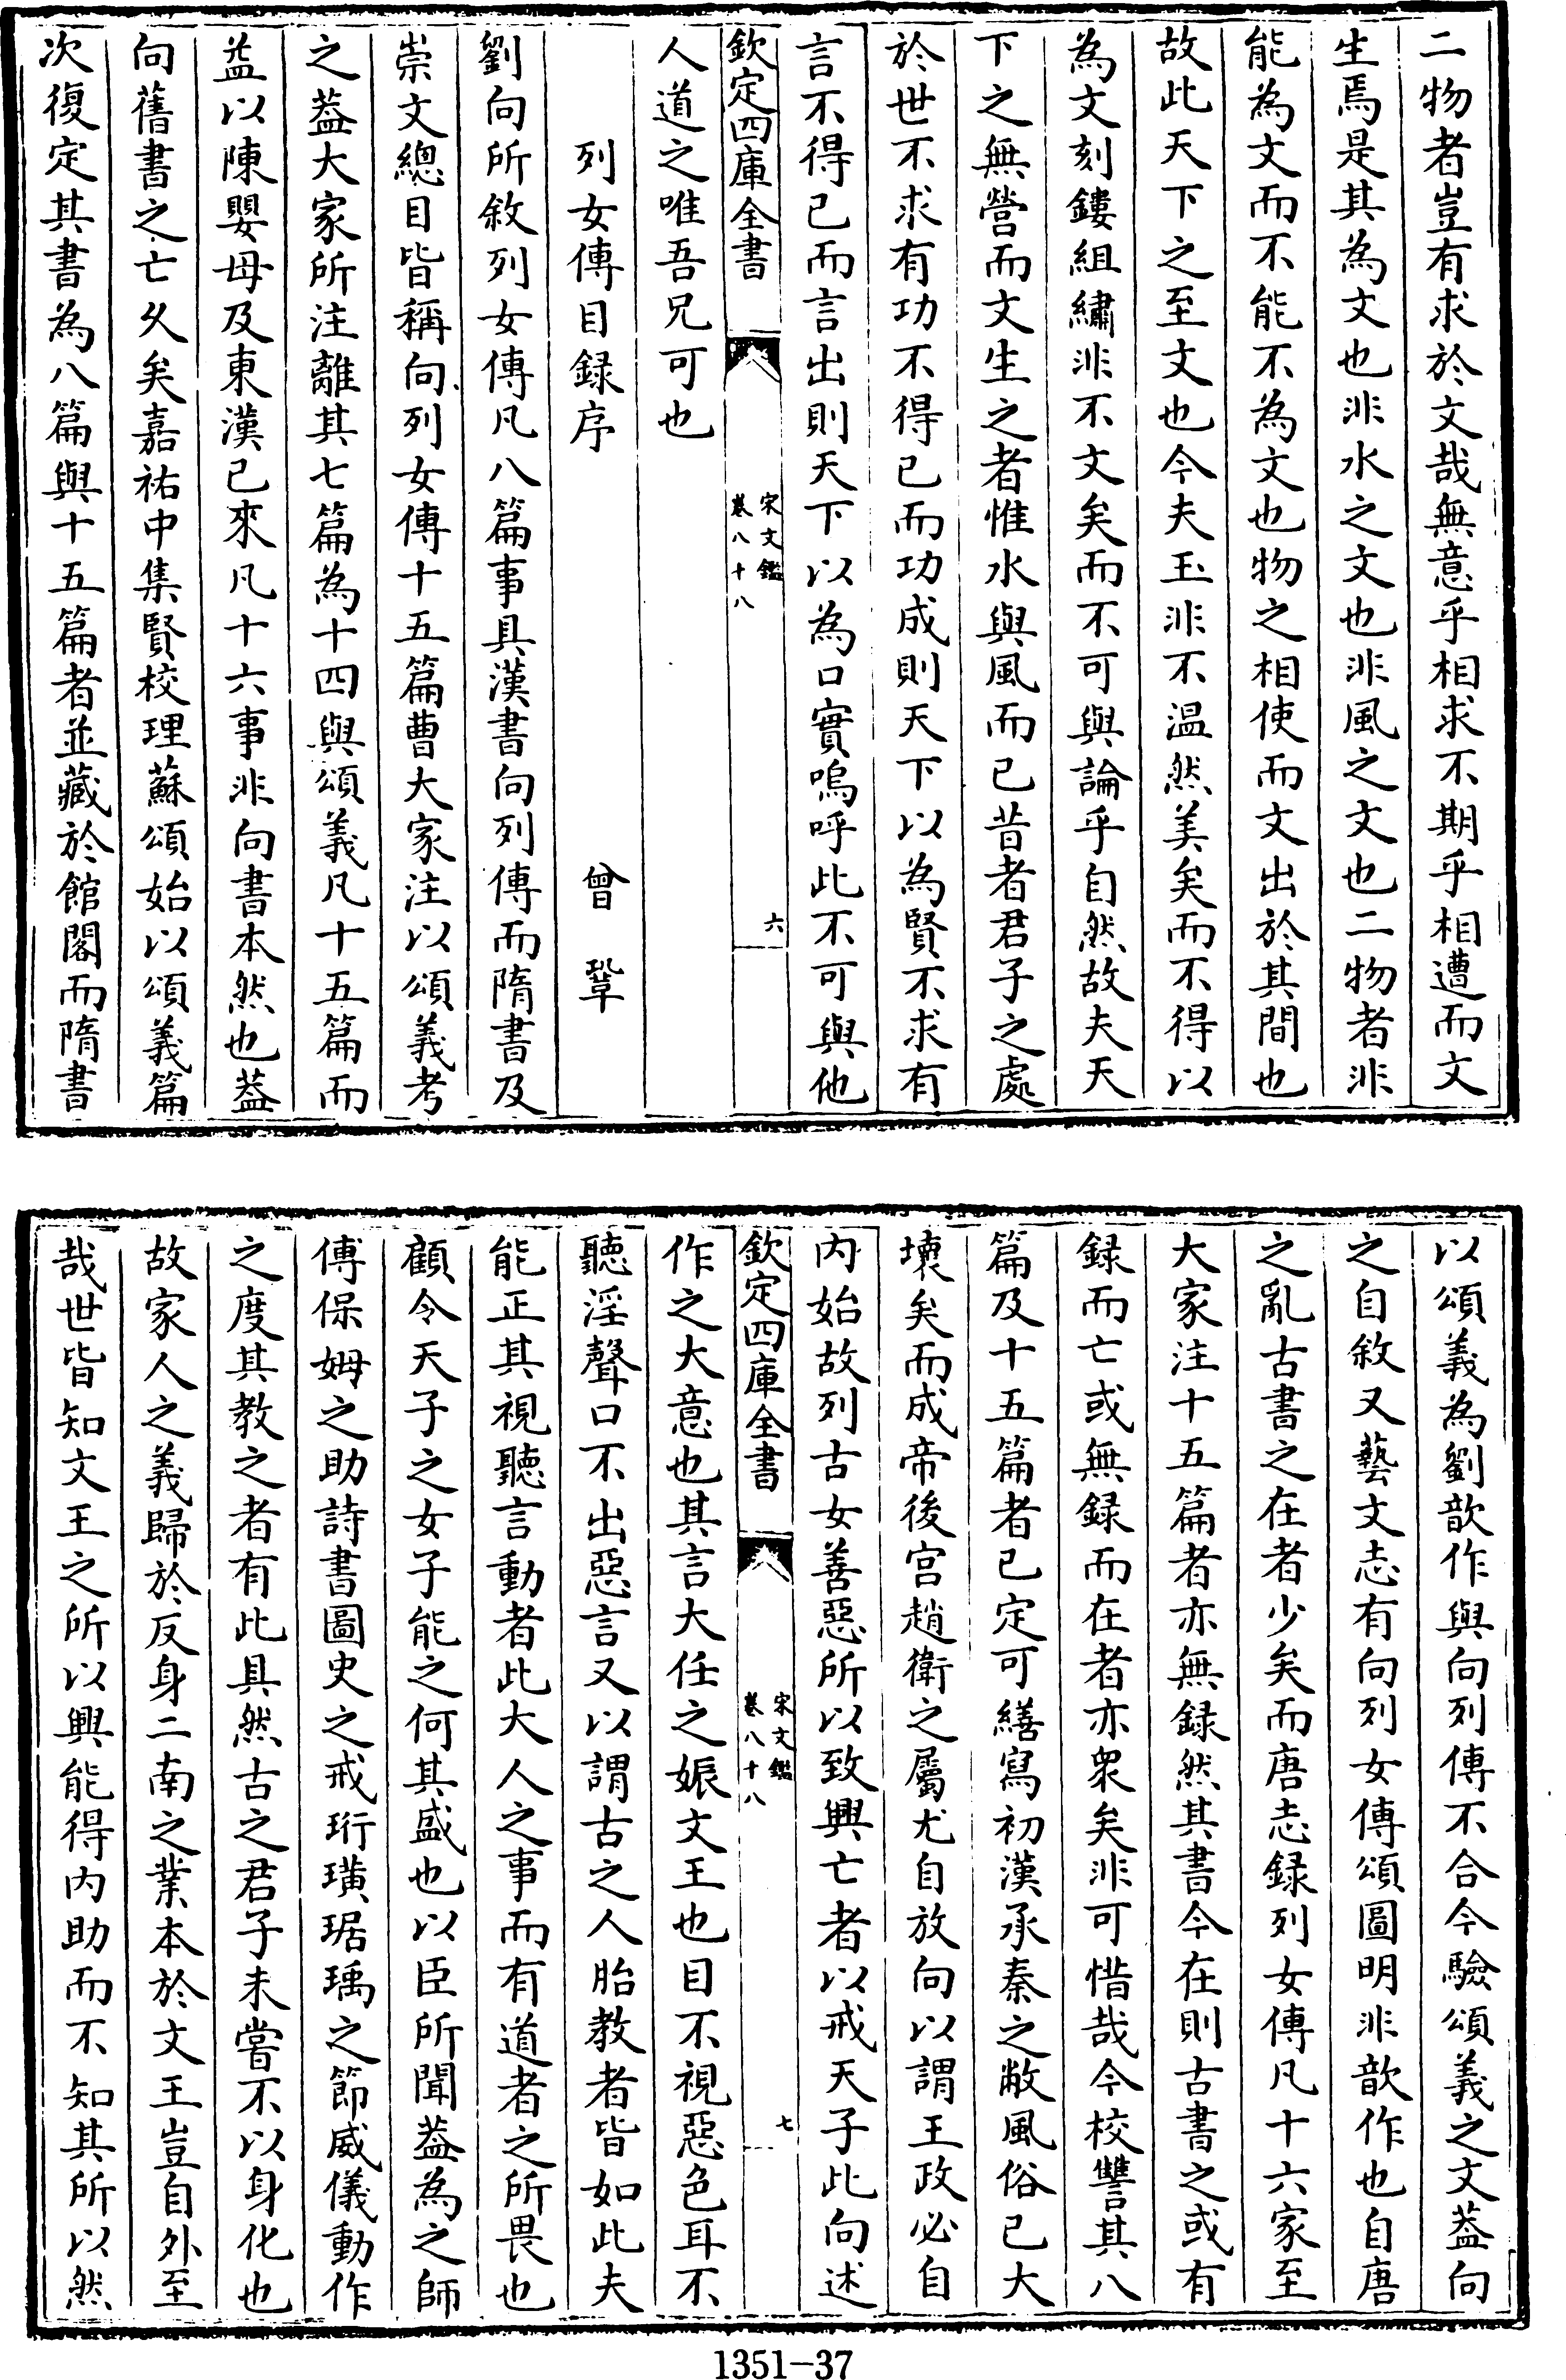 二物者豈有求於文哉無意乎相求不期乎相遭而文
生焉是其為文也非水之文也非風之文也二物者非
能為文而不能不為文也物之相使而文出於其間也
故此天下之至文也今夫玉非不温然美矣而不得以
為文刻鏤組繡非不文矣而不可與論乎自然故夫天
下之無營而文生之者惟水與風而已昔者君子之處
於世不求有功不得已而功成則天下以為賢不求有
言不得已而言出則天下以為口實嗚呼此不可與他
欽定四庫全書
宋文鑑
卷八十八
六
人道之唯吾兄可也
列女傳目録序
曾鞏
劉向所敘列女傳凡八篇事具漢書向列傳而隋書及
崇文總目皆稱向列女傳十五篇曹大家注以頌義考
之葢大家所注離其七篇為十四與頌義凡十五篇而
益以陳嬰母及東漢已來凡十六事非向書本然也葢
向舊書之亡乆矣嘉祐中集賢校理蘇頌始以頌義篇
次復定其書為八篇與十五篇者並藏於館閣而隋書
以頌義為劉歆作與向列傳不合今驗頌義之文葢向
之自敘又藝文志有向列女傳頌圖明非歆作也自唐
之亂古書之在者少矣而唐志録列女傳凡十六家至
大家注十五篇者亦無録然其書今在則古書之或有
録而亡或無録而在者亦衆矣非可惜哉今校讐其八
篇及十五篇者已定可繕寫初漢承秦之敝風俗已大
壞矣而成帝後宫趙衛之屬尤自放向以謂王政必自
内始故列古女善惡所以致興亡者以戒天子此向述
欽定四庫全書
宋文鑑
卷八十八
七
作之大意也其言大任之娠文王也目不視惡色耳不
聽淫聲口不出惡言又以謂古之人胎教者皆如此夫
能正其視聽言動者此大人之事而有道者之所畏也
顧令天子之女子能之何其盛也以臣所聞葢為之師
傅保姆之助詩書圖史之戒珩璜琚瑀之節威儀動作
之度其教之者有此具然古之君子未嘗不以身化也
故家人之義歸於反身二南之業本於文王豈自外至
哉世皆知文王之所以興能得内助而不知其所以然
1351-37